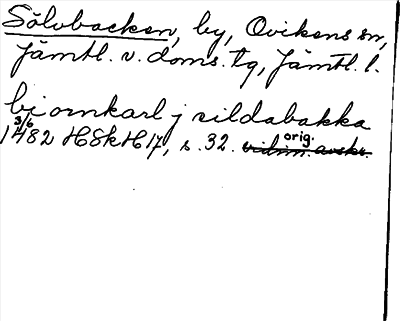 Sölvbacken, by, Ovikens sn,
Jämtl. v. doms. tg, Jämtl. l.
bjornkarl j sildabakka
3/6 1482 HSkH 17, s. 32. orig. vidim. avskr.